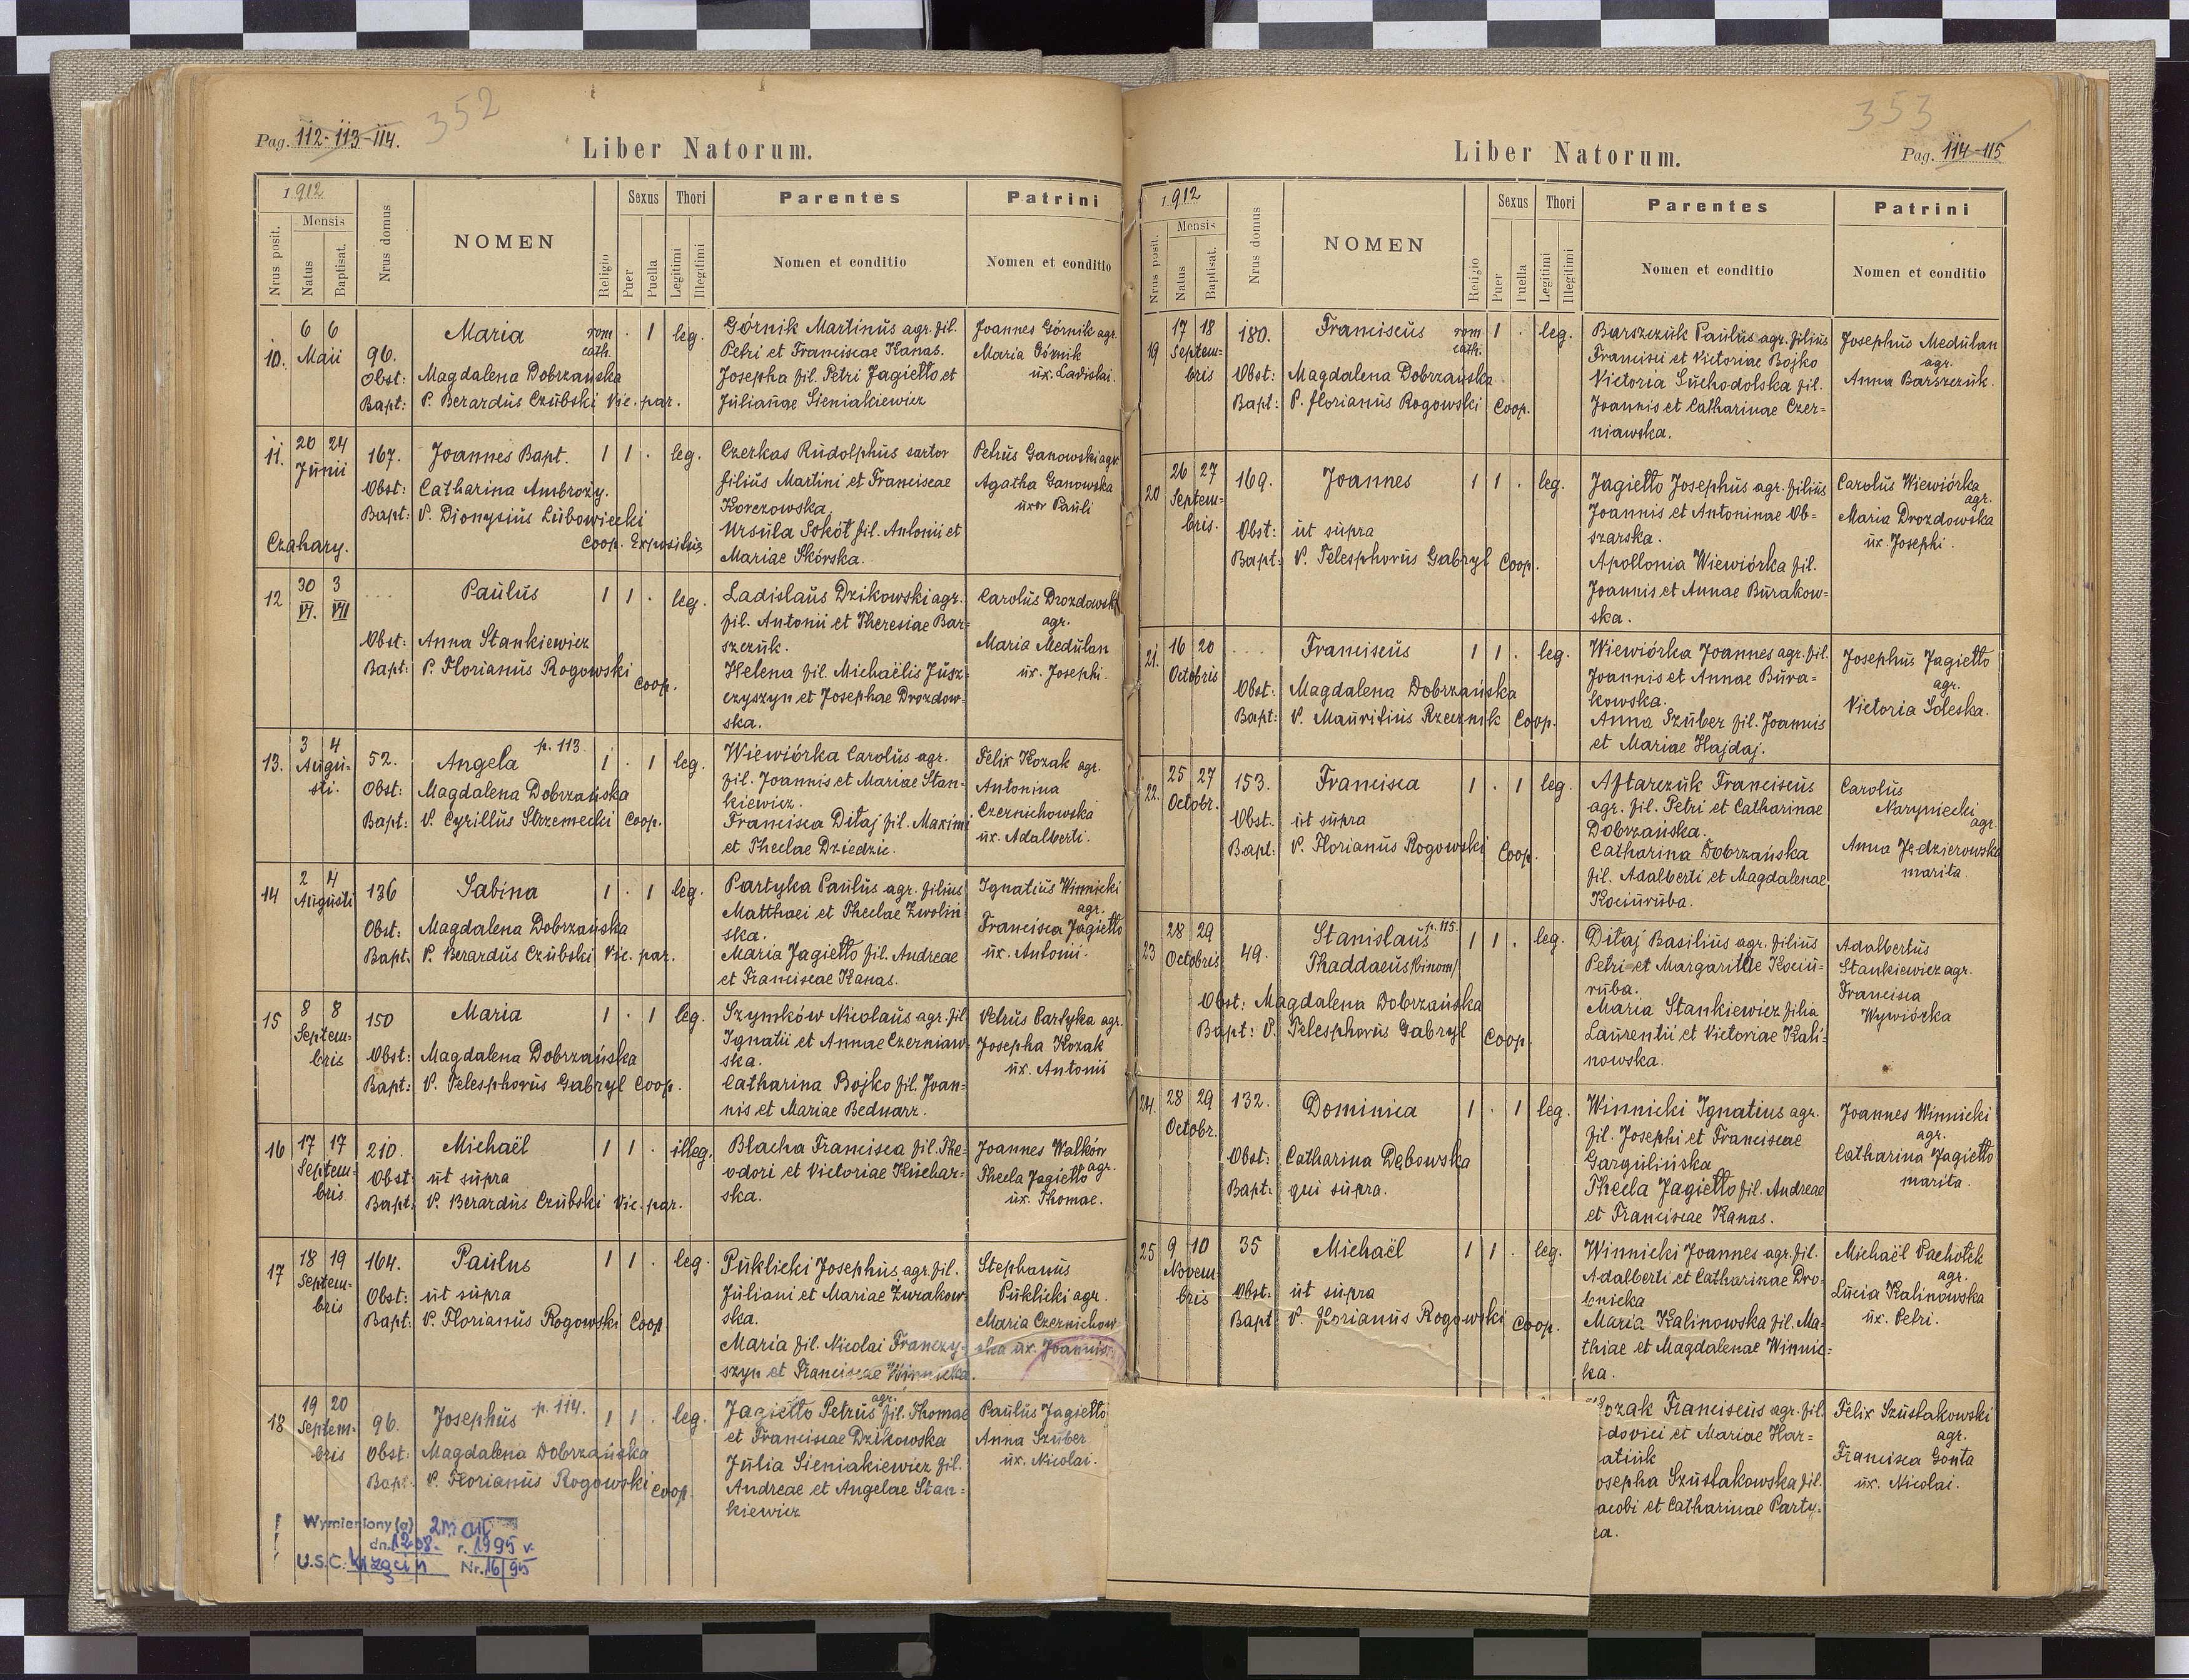 352
Pag. 112-113-114.
Liber Natorum.
1912
Nrus posit.
Mensis
Natus
Baptisat.
Nrus domus
NOMEN
Religio
Sexus
Puer
Puella
Thori
Legitimi
Illegitimi
Parentes
Nomen et conditio
Patrini
Nomen et conditio
10. 6 6 Maii 96. Maria rom cath. . 1 leg.
Obst: Magdalena Dobrzańska
Bapt: P. Berardus Czubski Vic. par.
Górnik Martinus agr. fil.
Petri et Franciscae Kanas.
Josepha fil. Petri Jagiełło et
Julianae Sieniakiewicz
Joannes Górnik agr.
Maria Górnik
ux. Ladislai.
11. 20 24 Junii 167. Joannes Bapt. 1 1 . leg.
Obst: Catharina Ambroży.
Bapt: P. Dionysius Lubowiecki
Coop. Expositus
Czahary.
Czerkas Rudolphus sartor
filius Martini et Franciscae
Korczowska.
Ursula Sokół fil. Antonii et
Mariae Skórska.
Petrus Ganowski agr.
Agatha Ganowska
uxor Pauli
12 30 3 VI. VII ... Paulus 1 1 . leg.
Obst: Anna Stankiewicz
Bapt: P. Florianus Rogowski
Coop.
Ladislaus Dzikowski agr.
fil. Antonii et Theresiae Bar-
szczuk.
Helena fil. Michaëlis Jusz-
czyszyn et Josephae Drozdow-
ska.
Carolus Drozdowsk
agr.
Maria Medulan
ux. Josephi.
13. 3 4 Augu-
sti. 52. Angela p. 113. 1 . 1 leg.
Obst: Magdalena Dobrzańska
Bapt: P. Cyrillus Strzemecki Coop.
Wiewiórka Carolus agr.
fil. Joannis et Mariae Stan-
kiewicz.
Francisca Ditaj fil. Maximi
et Theclae Dziedzic.
Felix Kozak agr.
Antonina
Czernichowska
ux. Adalberti.
14 2 4 Augusti 136 Sabina 1 . 1 leg.
Obst: Magdalena Dobrzańska
Bapt. P. Berardus Czubski Vic. par.
Partyka Paulus agr. filius
Matthaei et Theclae Zwoliń-
ska.
Maria Jagiełło fil. Andreae
et Franciscae Kanas.
Ignatius Winnicki
agr.
Francisca Jagiełło
ux. Antonii.
15 8 8 Septem-
bris 150 Maria 1 . 1 leg.
Obst: Magdalena Dobrzańska
Bapt: P. Telesphorus Gabryl Coop.
Szymków Nicolaus agr. fil
Ignatii et Annae Czerniaw-
ska.
Catharina Bojko fil. Joan-
nis et Mariae Bednarz.
Petrus Partyka agr.
Josepha Kozak
ux. Antonii
16 17 17 Septem-
bris 210. Michaël 1 1 . illeg.
Obst: ut supra
Bapt: P. Berardus Czubski Vic. par.
Blacha Francisca fil. The-
odori et Victoriae Kuchar-
ska.
Joannes Walków
agr.
Thecla Jagiełło
ux. Thomae.
17 18 19 Septem-
bris 164. Paulus 1 1 . leg.
Obst: ut supra
Bapt: P. Florianus Rogowski Coop
Puklicki Josephus agr. fil.
Juliani et Mariae Żurakow-
ska.
Maria fil. Nicolai Franczy-
szyn et Franciscae Winnicka.
Stephanus
Puklicki agr.
Maria Czernichow
ska ux. Joannis
18 19 20 Septem-
bris 96. Josephus p. 114. 1 1 . leg.
Obst: Magdalena Dobrzańska
Bapt. P. Florianus Rogowski Coop.
Jagiełło Petrus agr. fil. Thomae
et Franciscae Dzikowska
Julia Sieniakiewicz fil.
Andreae et Angelae Stan-
kiewicz
Paulus Jagiełło
Anna Szuber
ux. Nicolai.
Wymieniony (a) zmarł
dn. 12.08. r. 1995 r.
U.S.C. Nr. 16/95
353
Liber Natorum.
Pag. 114-115
1912
Nrus posit.
Mensis
Natus
Baptisat.
Nrus domus
NOMEN
Religio
Sexus
Puer
Puella
Thori
Legitimi
Illegitimi
Parentes
Nomen et conditio
Patrini
Nomen et conditio
19 17 18 Septem-
bris 180. Franciscus rom cath. 1 . leg.
Obst: Magdalena Dobrzańska
Bapt: P. Florianus Rogowski Coop.
Barszczuk Paulus agr. filius
Francisci et Victoriae Bojko
Victoria Suchodolska fil.
Joannis et Catharinae Czer-
niawska.
Josephus Medulan
agr.
Anna Barszczuk.
20 26 27 Septem-
bris. 169. Joannes 1 1 . leg.
Obst: ut supra
Bapt: P. Telesphorus Gabryl Coop.
Jagiełło Josephus agr. filius
Joannis et Antoninae Ob-
szarska.
Apollonia Wiewiórka fil.
Joannis et Annae Burakow-
ska.
Carolus Wiewiórka
agr.
Maria Drozdowska
ux. Josephi.
21. 16 20 Octobris ... Franciscus 1 1 . leg.
Obst: Magdalena Dobrzańska
Bapt: P. Mauritius Rzecznik Coop.
Wiewiórka Joannes agr. fil.
Joannis et Annae Bura-
kowska.
Anna Szuber fil. Joannis
et Mariae Hajdaj.
Josephus Jagiełło
agr.
Victoria Soleska.
22. 25 27 Octobr. 153. Francisca 1 . 1 leg.
Obst. ut supra
Bapt: P. Florianus Rogowski Coop.
Aftarczuk Franciscus
agr. fil. Petri et Catharinae
Dobrzańska.
Catharina Dobrzańska
fil. Adalberti et Magdalenae
Kociuruba.
Carolus
Naryniecki
agr.
Anna Jędzierowska
marita.
23 28 29 Octobris 49. Stanislaus p. 115. 1 1 . leg.
Thaddaeus /binom/
Obst: Magdalena Dobrzańska
Bapt: P. Telesphorus Gabryl Coop.
Ditaj Basilius agr. filius
Petri et Margaritae Kociu-
ruba.
Maria Stankiewicz filia
Laurentii et Victoriae Kali-
nowska.
Adalbertus
Stankiewicz agr.
Francisca
Wywiórka
24. 28 29 Octobr. 132. Dominica 1 . 1 leg.
Obst: Catharina Dębowska
Bapt: qui supra.
Winnicki Ignatius agr.
fil. Josephi et Franciscae
Gargulińska
Thecla Jagiełło fil. Andreae
et Franciscae Kanas.
Joannes Winnicki
agr.
Catharina Jagiełło
marita.
25 9 10 Novem-
bris 35 Michaël 1 1 . leg.
Obst: ut supra
Bapt P. Florianus Rogowski Coop.
Winnicki Joannes agr. fil.
Adalberti et Catharinae Dro-
bnicka
Maria Kalinowska fil. Ma-
thiae et Magdalenae Winnic-
ka.
Michaël Pachołek
agr.
Lucia Kalinowska
ux. Petri.
ozak Franciscus agr. fil.
dovici et Mariae Har-
atiuk
osepha Szustakowska fil.
acobi et Catharinae Party-
ka.
Felix Szustakowski
agr.
Francisca Gonta
ux. Nicolai.